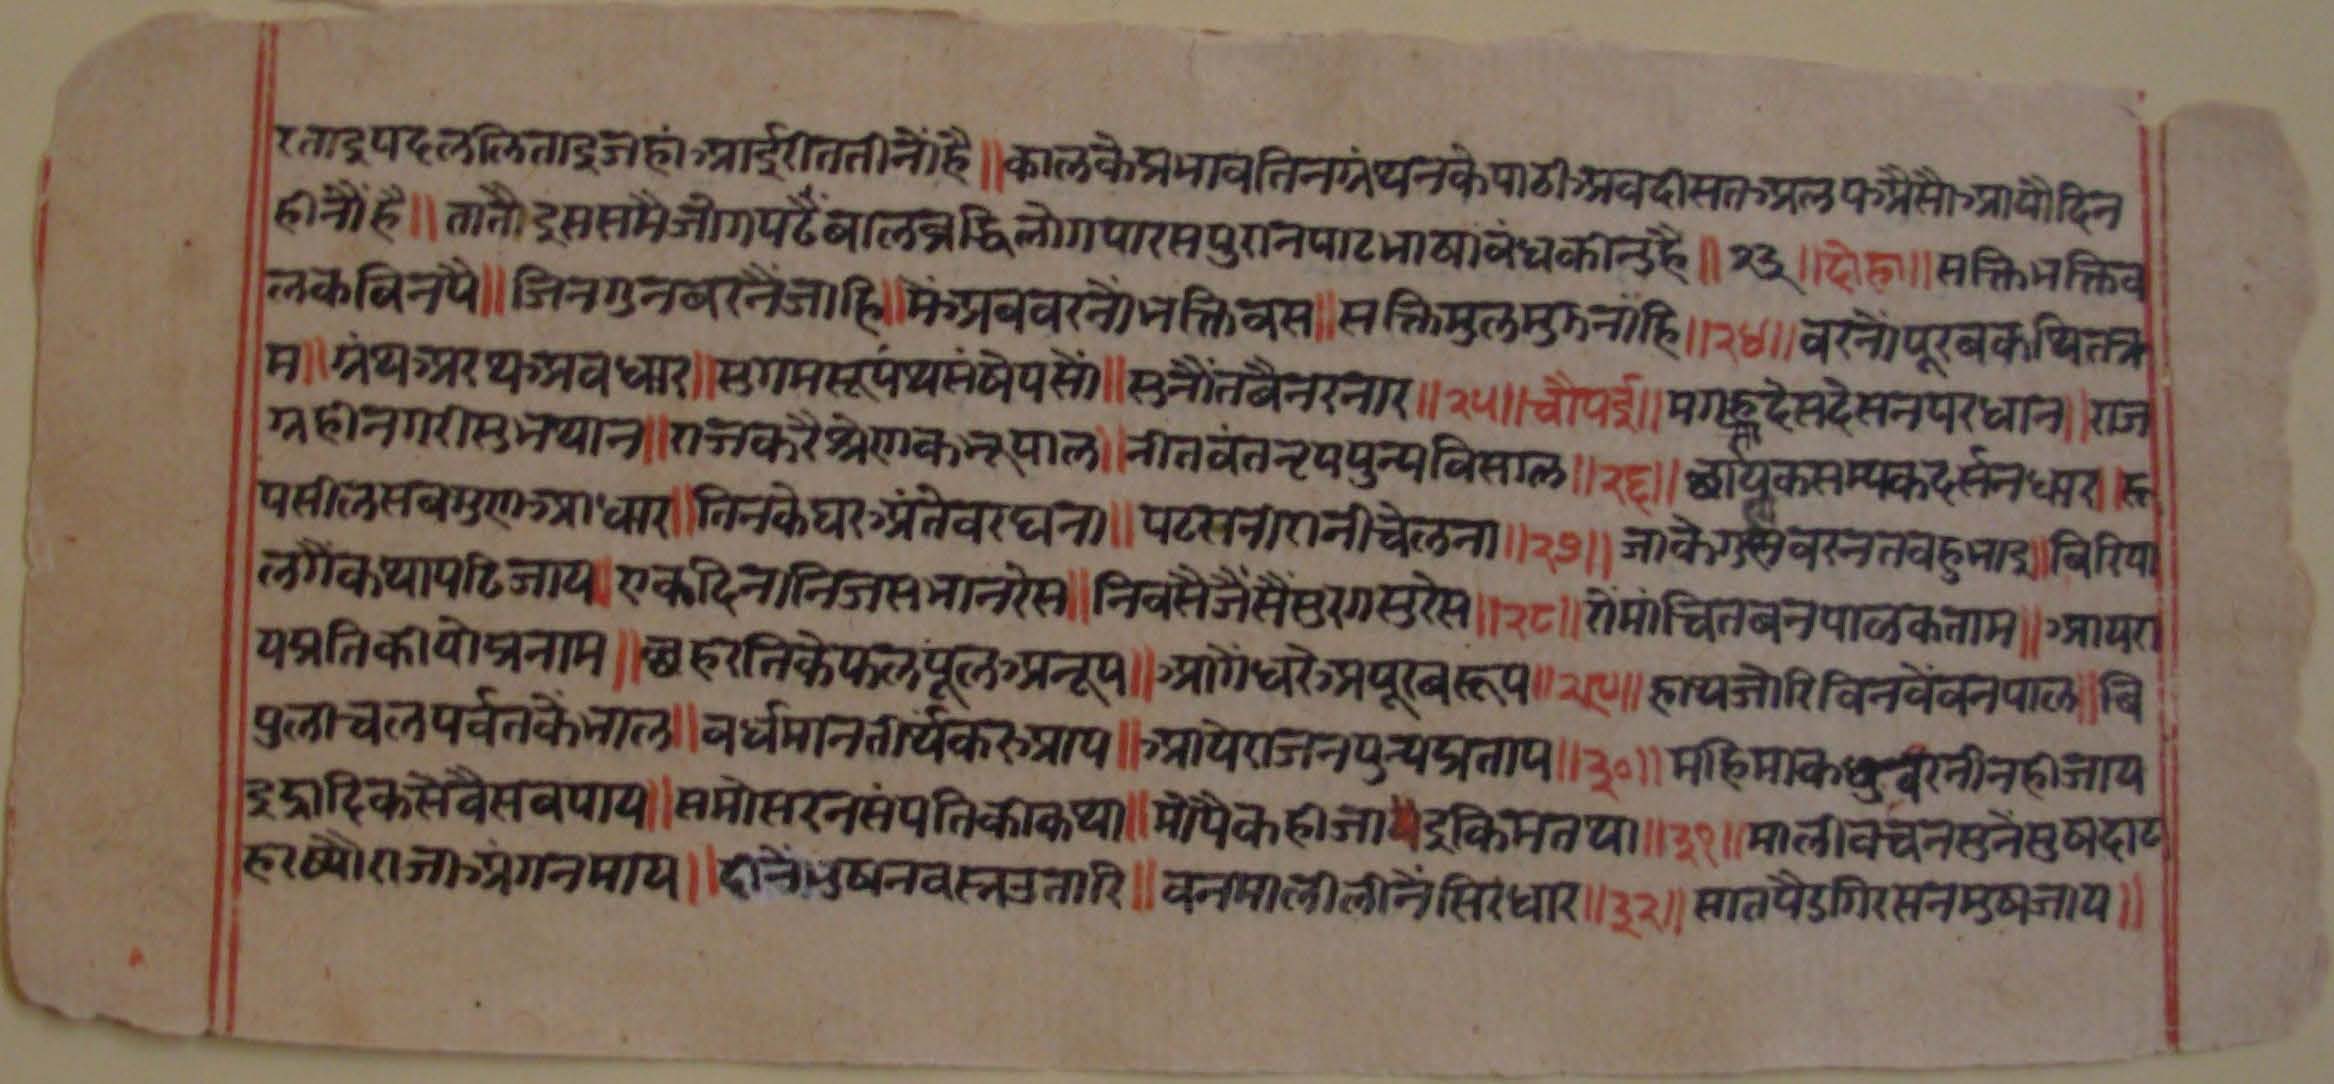 रताइपदललिताइजहांआईरीततीनौंहै॥कालकेप्रभावतिनग्रंथनकेपाठीअवदीसतअलपअैसौआयौदिन
हीनौंहै॥तातौइससमैजोगपढैंबालबुद्धिलोगपारसपुरानपाटभाषाबंधकीनुहै॥२३॥दोहा॥सक्तिभक्तिव
लकविनपै॥जिनगुनबरनैंजाहि॥मैंअबवरनौंभक्तिवस॥सक्तिमुलमुऊनांहि॥२४॥वरनौंपूरबकथितक्र
म॥ग्रंथअरथअवधार॥सुगमसूपंथसंषेपसौं॥सुनौंतबैनरनार॥२५॥चौपई॥मगहदेसदेसनपरधान॥राज
ग्रहीनगरीसुभथान॥राजकरैश्रेणकनूपाल॥नीतवंतनृपपुन्यविसाल॥२६॥छायूकसम्यकदर्सनधार॥रू
पसीलसबगुणआधार॥तिनकेघरअंतेवरघना॥पटरानीरानीचेलना॥२७॥जाकेगुनवरनतवहुभाइ॥बिरिया
लगैंकथापढिजाय॥एकदिनानिजसभानरेस॥निवसैजैंसैंसुरगसुरेस॥२८॥रोमांचितबनपालकताम॥आयरा
यप्रतिकीयोप्रनाम॥छहरतिकेफलफूलअनूप॥आगैंधरेअपूरबरूप॥२९॥हाथजोरिविनवेंवनपाल॥बि
पुलाचलपर्वतकेंभाल॥वर्धमानतीर्थंकरआप॥आयेराजनपुन्यप्रताप॥३०॥महिमाकछुवरनीनहीजाय
इद्रादिकसेवैसवपाय॥समोसरनसंपतिकीकथा॥मोपैकहीजायइकिमतथा॥३१॥मालीवचनसुनेंसुषदाय
हरष्यौराजाअंगनमाय॥दीनेंभुषनवस्त्रउतारि॥वनमालीलीनैंसिरधार॥३२॥सातपैडगिरसनमुषजाय॥